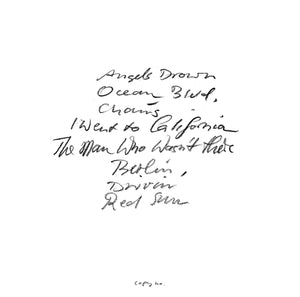 Angels Drown
Ocean Blvd,
Chains
I Went to California
The Man Who Wasn't There
Berlin,
Drivin
Red Sun